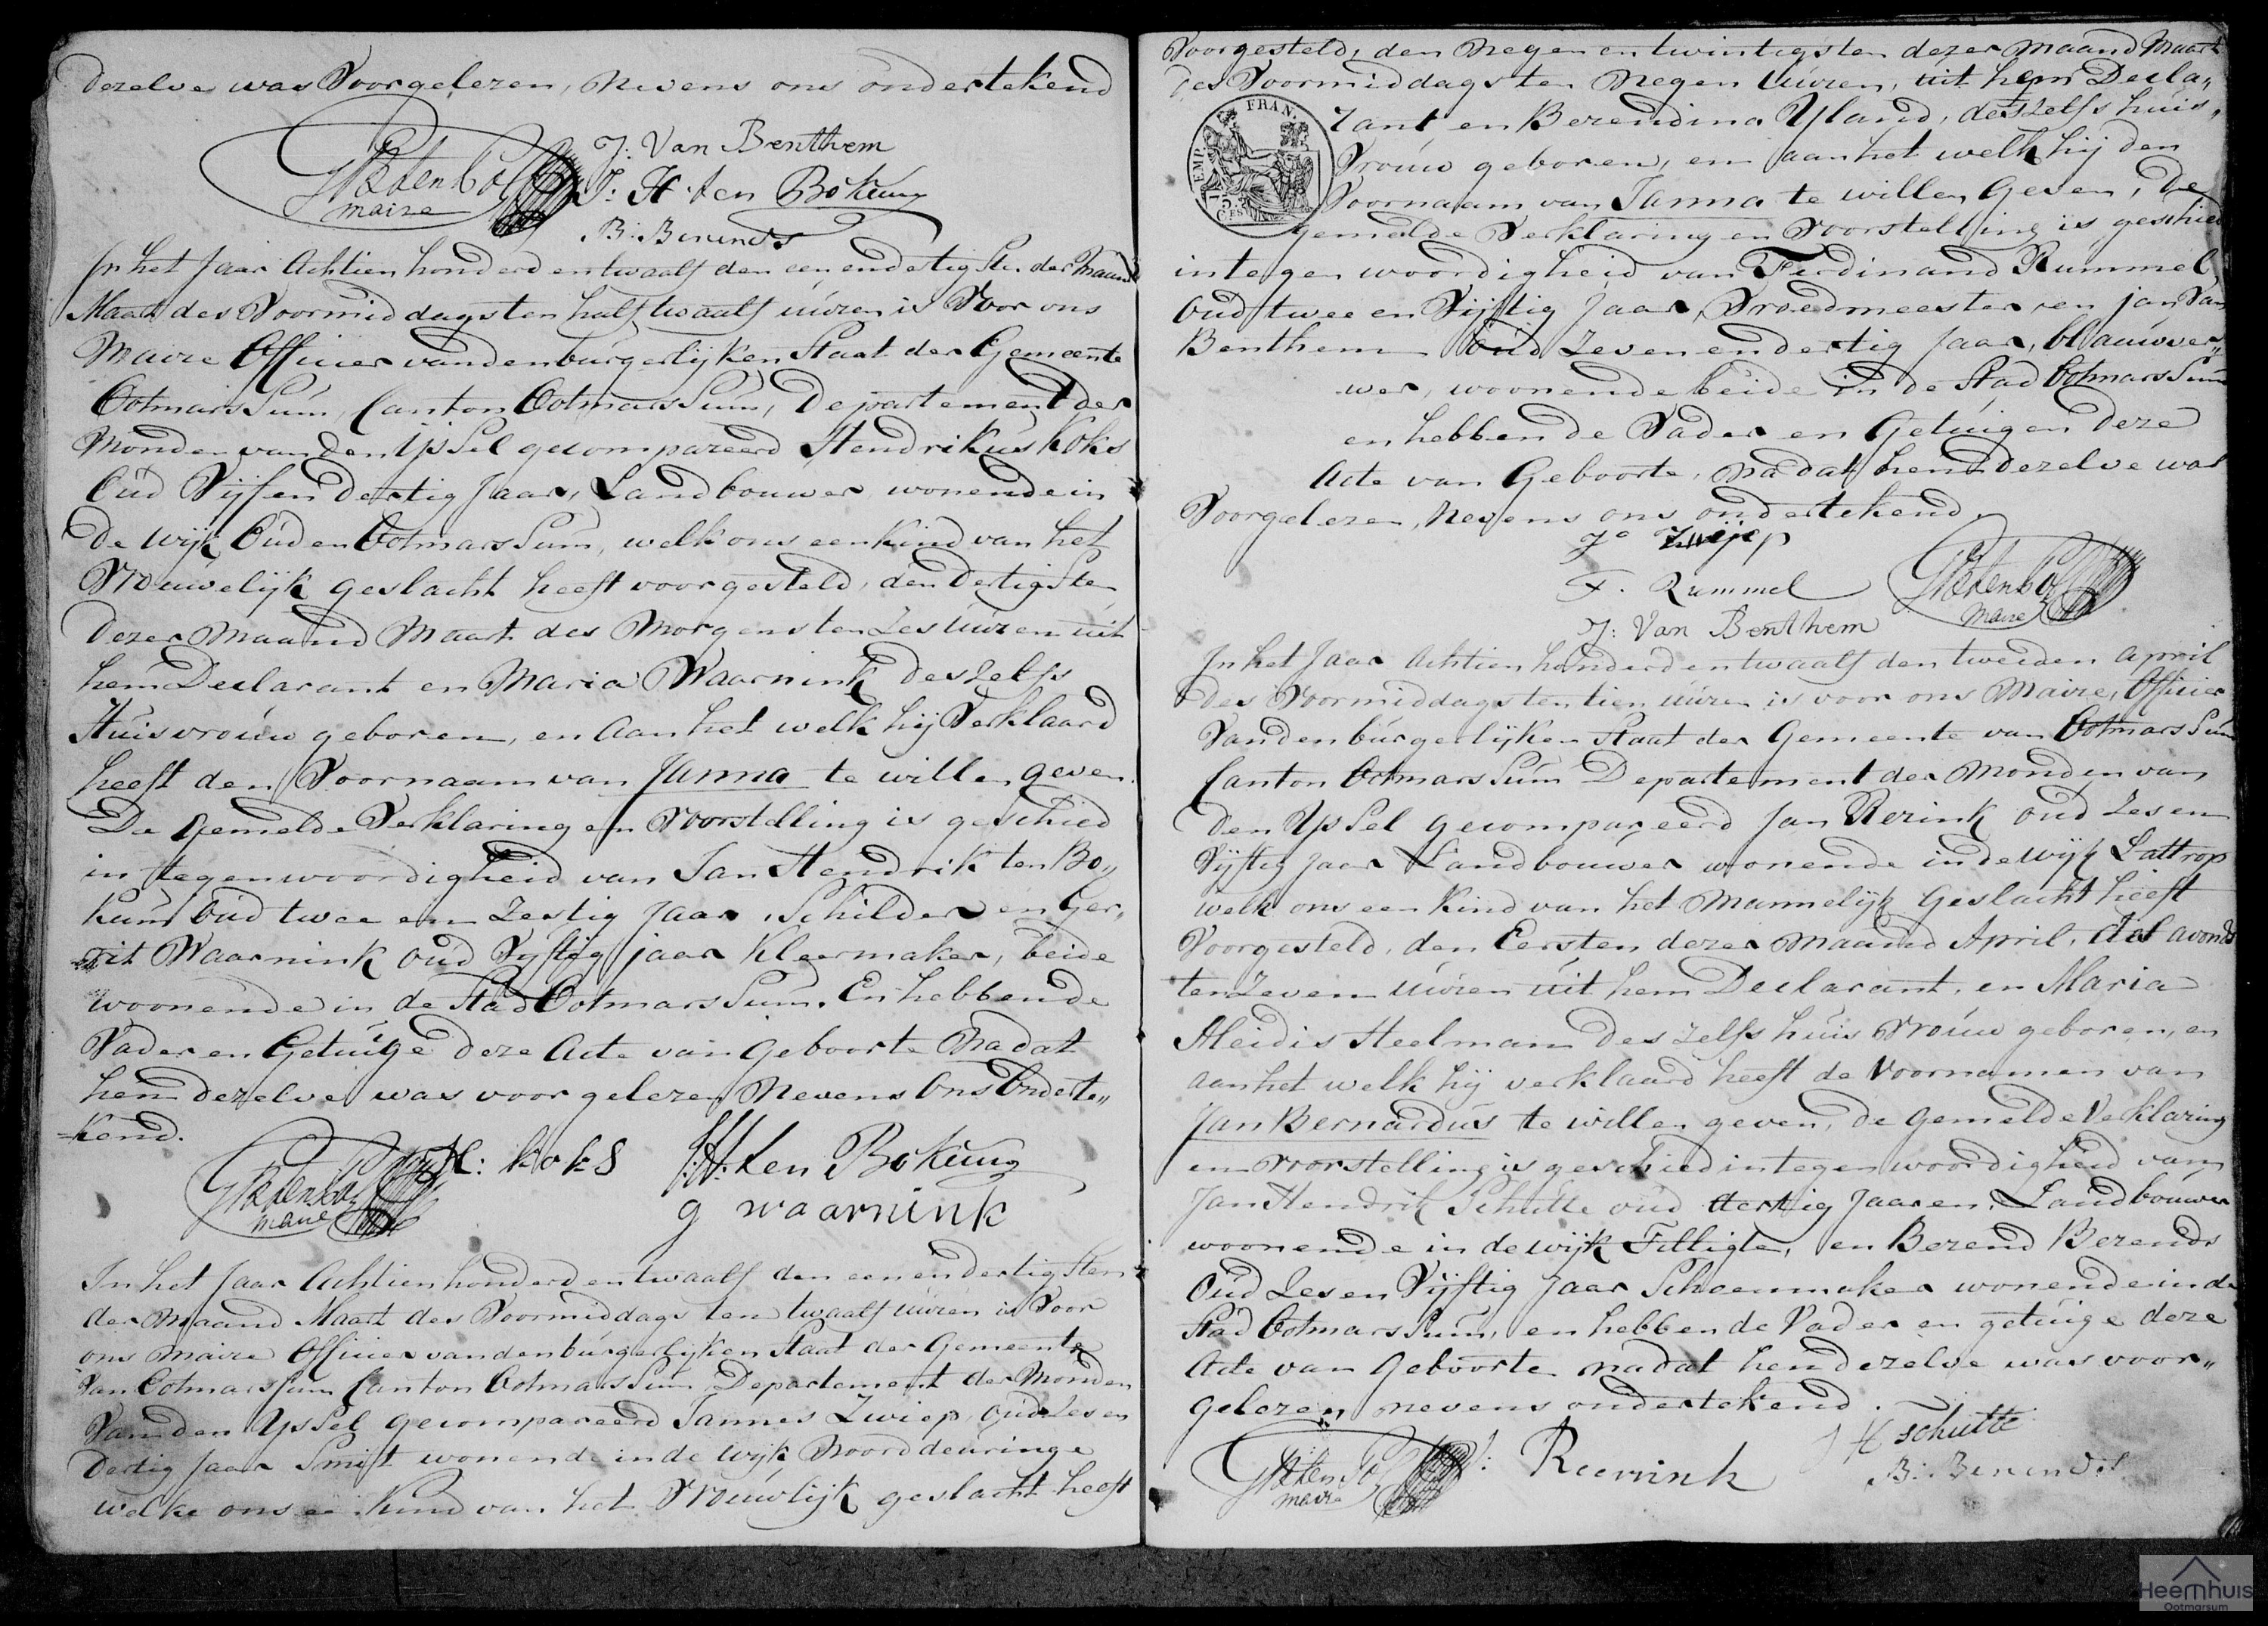 dezelve was Voorgelezen, Nevens ons ondertekend
J: Van Benthem
maire
J: H: ten Bökeung
B: Berends
In het Jaar Achtien honderd en twaalf den een en dertigsten der Maand
Maart des Voormiddags ten half twaalf uúren is Voor ons
Maire Officier van den burgerlijken Staat der Gemeente
Ootmarssúm, Canton Ootmarssúm, Departement der
Monden van den IJssel gecompareerd Hendrikus Koks
Oúd Vijf en Dertig Jaar, Landbouwer wonende in
De wijk Oúd en Ootmarssúm, welk ons een Kind van het
Vrouwelijk geslacht heeft voorgesteld, den Dertigsten
Dezer Maand Maart des Morgens ten Zes Uúren uit
hem Declarant en Maria Waarnink deszelfs
Huisvroúw geboren, en aan het welk hij Verklaard
heeft den Voornaam van Janna te willen geven.
De Gemelde Verklaring en Voorstelling is geschied
in tegenwoordigheid van Jan Hendrik ten Bo„
kum Oúd twee en Zestig Jaar, Schilder en Ger„
rit Waarnink oúd Vyftig jaar Kleermaker, beide
woonende in de Stad Ootmarssúm. En hebben de
Vader en Getúige deze Acte van Geboorte Nadat
hem dezelve was voorgelezen Nevens Ons Onderte„
=kend.
H: koks
J: H: ten Bökeung
maire
g waarnink
In het Jaar Achtien honderd en twaalf den een en dertigsten
der Maand Maart des Voormiddags ten twaalf uúren is Voor
ons Maire Officier van den burgerlijken Staat der Gemeente
Van Ootmarssum Canton Ootmarssum Departement der Monden
Van den Yssel gecompareerd Jannes Zwiep, Oúd Zes en
Dertig Jaar Smit wonende in de Wyk Noorddeuringe
welke ons ee Kind van het Vroúwlijk geslacht heeft
Voorgesteld, den Negen en twintigsten dezer Maand Maart
des Voormiddags ten Negen Uúren, uit hem Decla„
EMP. FRAN.
75.
CES
rant en Berendina Yland, deszelfs huis„
Vroúw geboren, en aan het welk hij den
Voornaam van Janna te willen Geven, De
gemelde Verklaring en Voorstelling is geschied
in tegenwoordigheid van Ferdinand Rummel
Oud twee en Vijftig Jaar, Vroedmeester, en jan Van
Benthem Oúd Zeven en dertig Jaar, blaúwver„
wer, woonende beide in de Stad Ootmarssum
en hebben de Vader en Getúigen Deze
Acte van Geboorte, nadat hem dezelve was
Voorgelezen, Nevens ons ondertekend.
Js Zwijep
F. Rummel
maire
J: Van Benthem
In het Jaar Achtien honderd en twaalf den tweeden April
des Voormiddags ten tien uúren is voor ons Maire, Officier
Van den búrgerlijken Staat der Gemeente van Ootmarssúm
Canton Ootmarssúm Departement der Monden van
Den Yssel gecompareerd Jan Rerink oúd Zes en
Vijftig Jaar Landbouwer wonende in de wijk Lattrop
welk ons een Kind van het Mannelijk Geslacht heeft
Voorgesteld, den Eersten dezer Maand April, des avonds
ten Zeven Uúren úit hem Declarant, en Maria
Aleidis Heelman Deszelfs húis Vroúw geboren, en
aan het welk hij verklaard heeft de Voornamen van
Jan Bernardús te willen geven, de Gemelde Verklaring
en Voorstelling is geschied in tegenwoordigheid van
Jan Hendrik Schutte oúd tertig Jaaren, Landboúwer
woonende in de wijk Tilligte, en Berend Berends
Oud Zes en Vijftig Jaar Schoenmaker wonende in de
Stad Ootmarssum, en hebben de Vader en getúige deze
Acte van Geboorte nadat hem dezelve was voor„
gelezen nevens ondertekend.
J: Reerink
J H Schutte
maire
B: Berends
Heemhuis
Ootmarsum